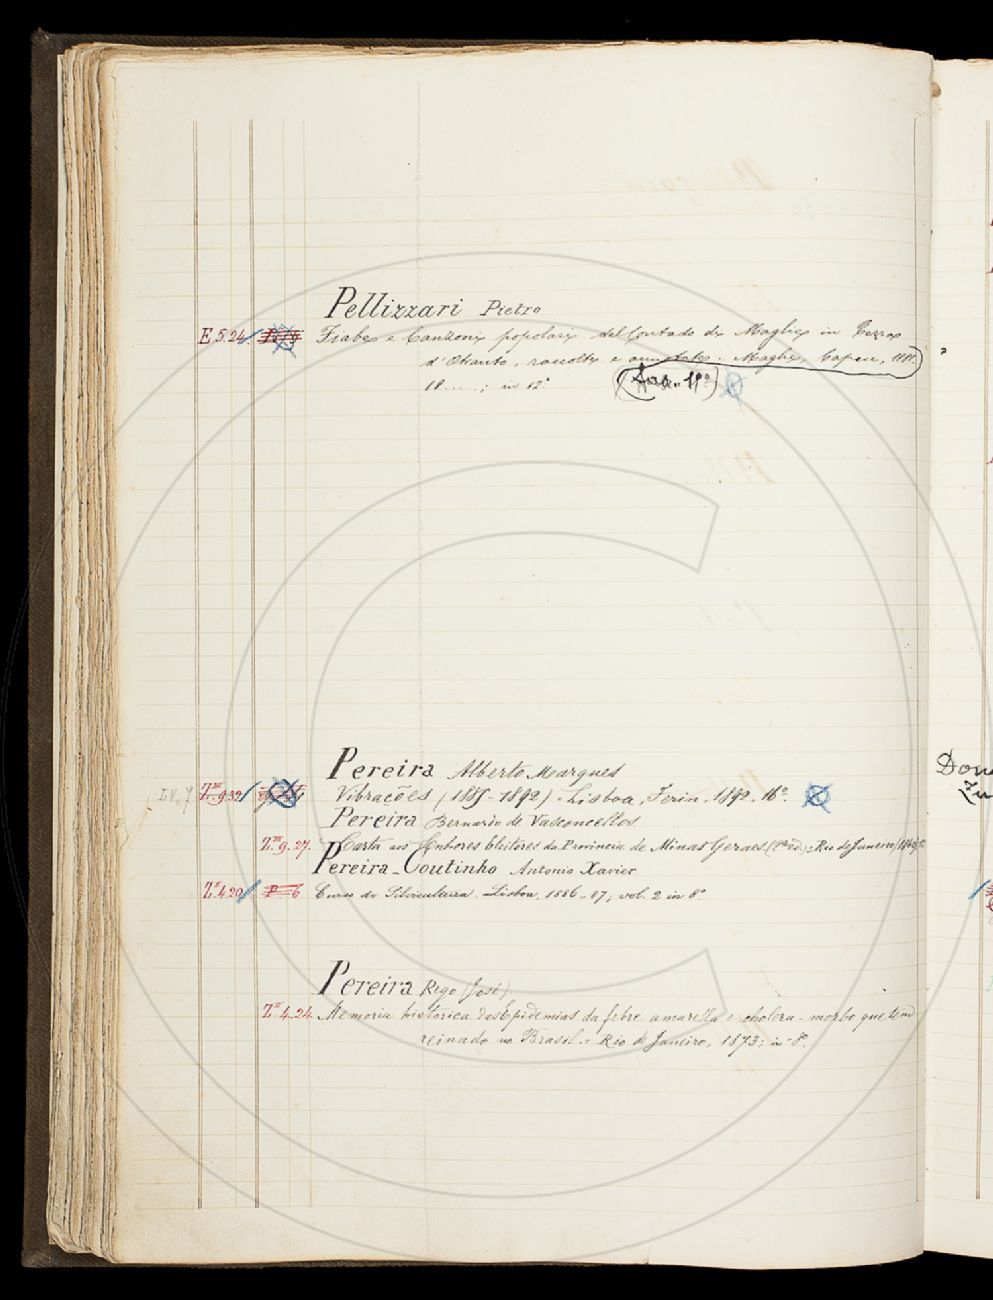 Pellizzari Pietro
E. 5. 24 Fiabe e Canzoni popolari del Contado di Maglie in Terra
d'Otranto, raccolte e annotate. Maglie, Capece, 1881.
18....; in 12°
Pereira Alberto Marques
Z.III 9.39 Vibrações (1885-1892). Lisboa, Ferin, 1892, 16°.
Pereira Bernardo de Vasconcellos
Z.III 9.27. Carta aos Senhores Eleitores da Provincia de Minas Geraes Rio de Janeiro
Pereira-Coutinho Antonio Xavier
Z.II 4.20 P. 6 Curso de Silvicultura. Lisboa, 1886-87; vol. 2 in 8°.
Pereira Rego (José)
Z.II 4.24 Memoria historica das Epidemias da febre amarella e cholera-morbo que tem
reinado no Brasil. Rio de Janeiro, 1873; in-8°.
Dom